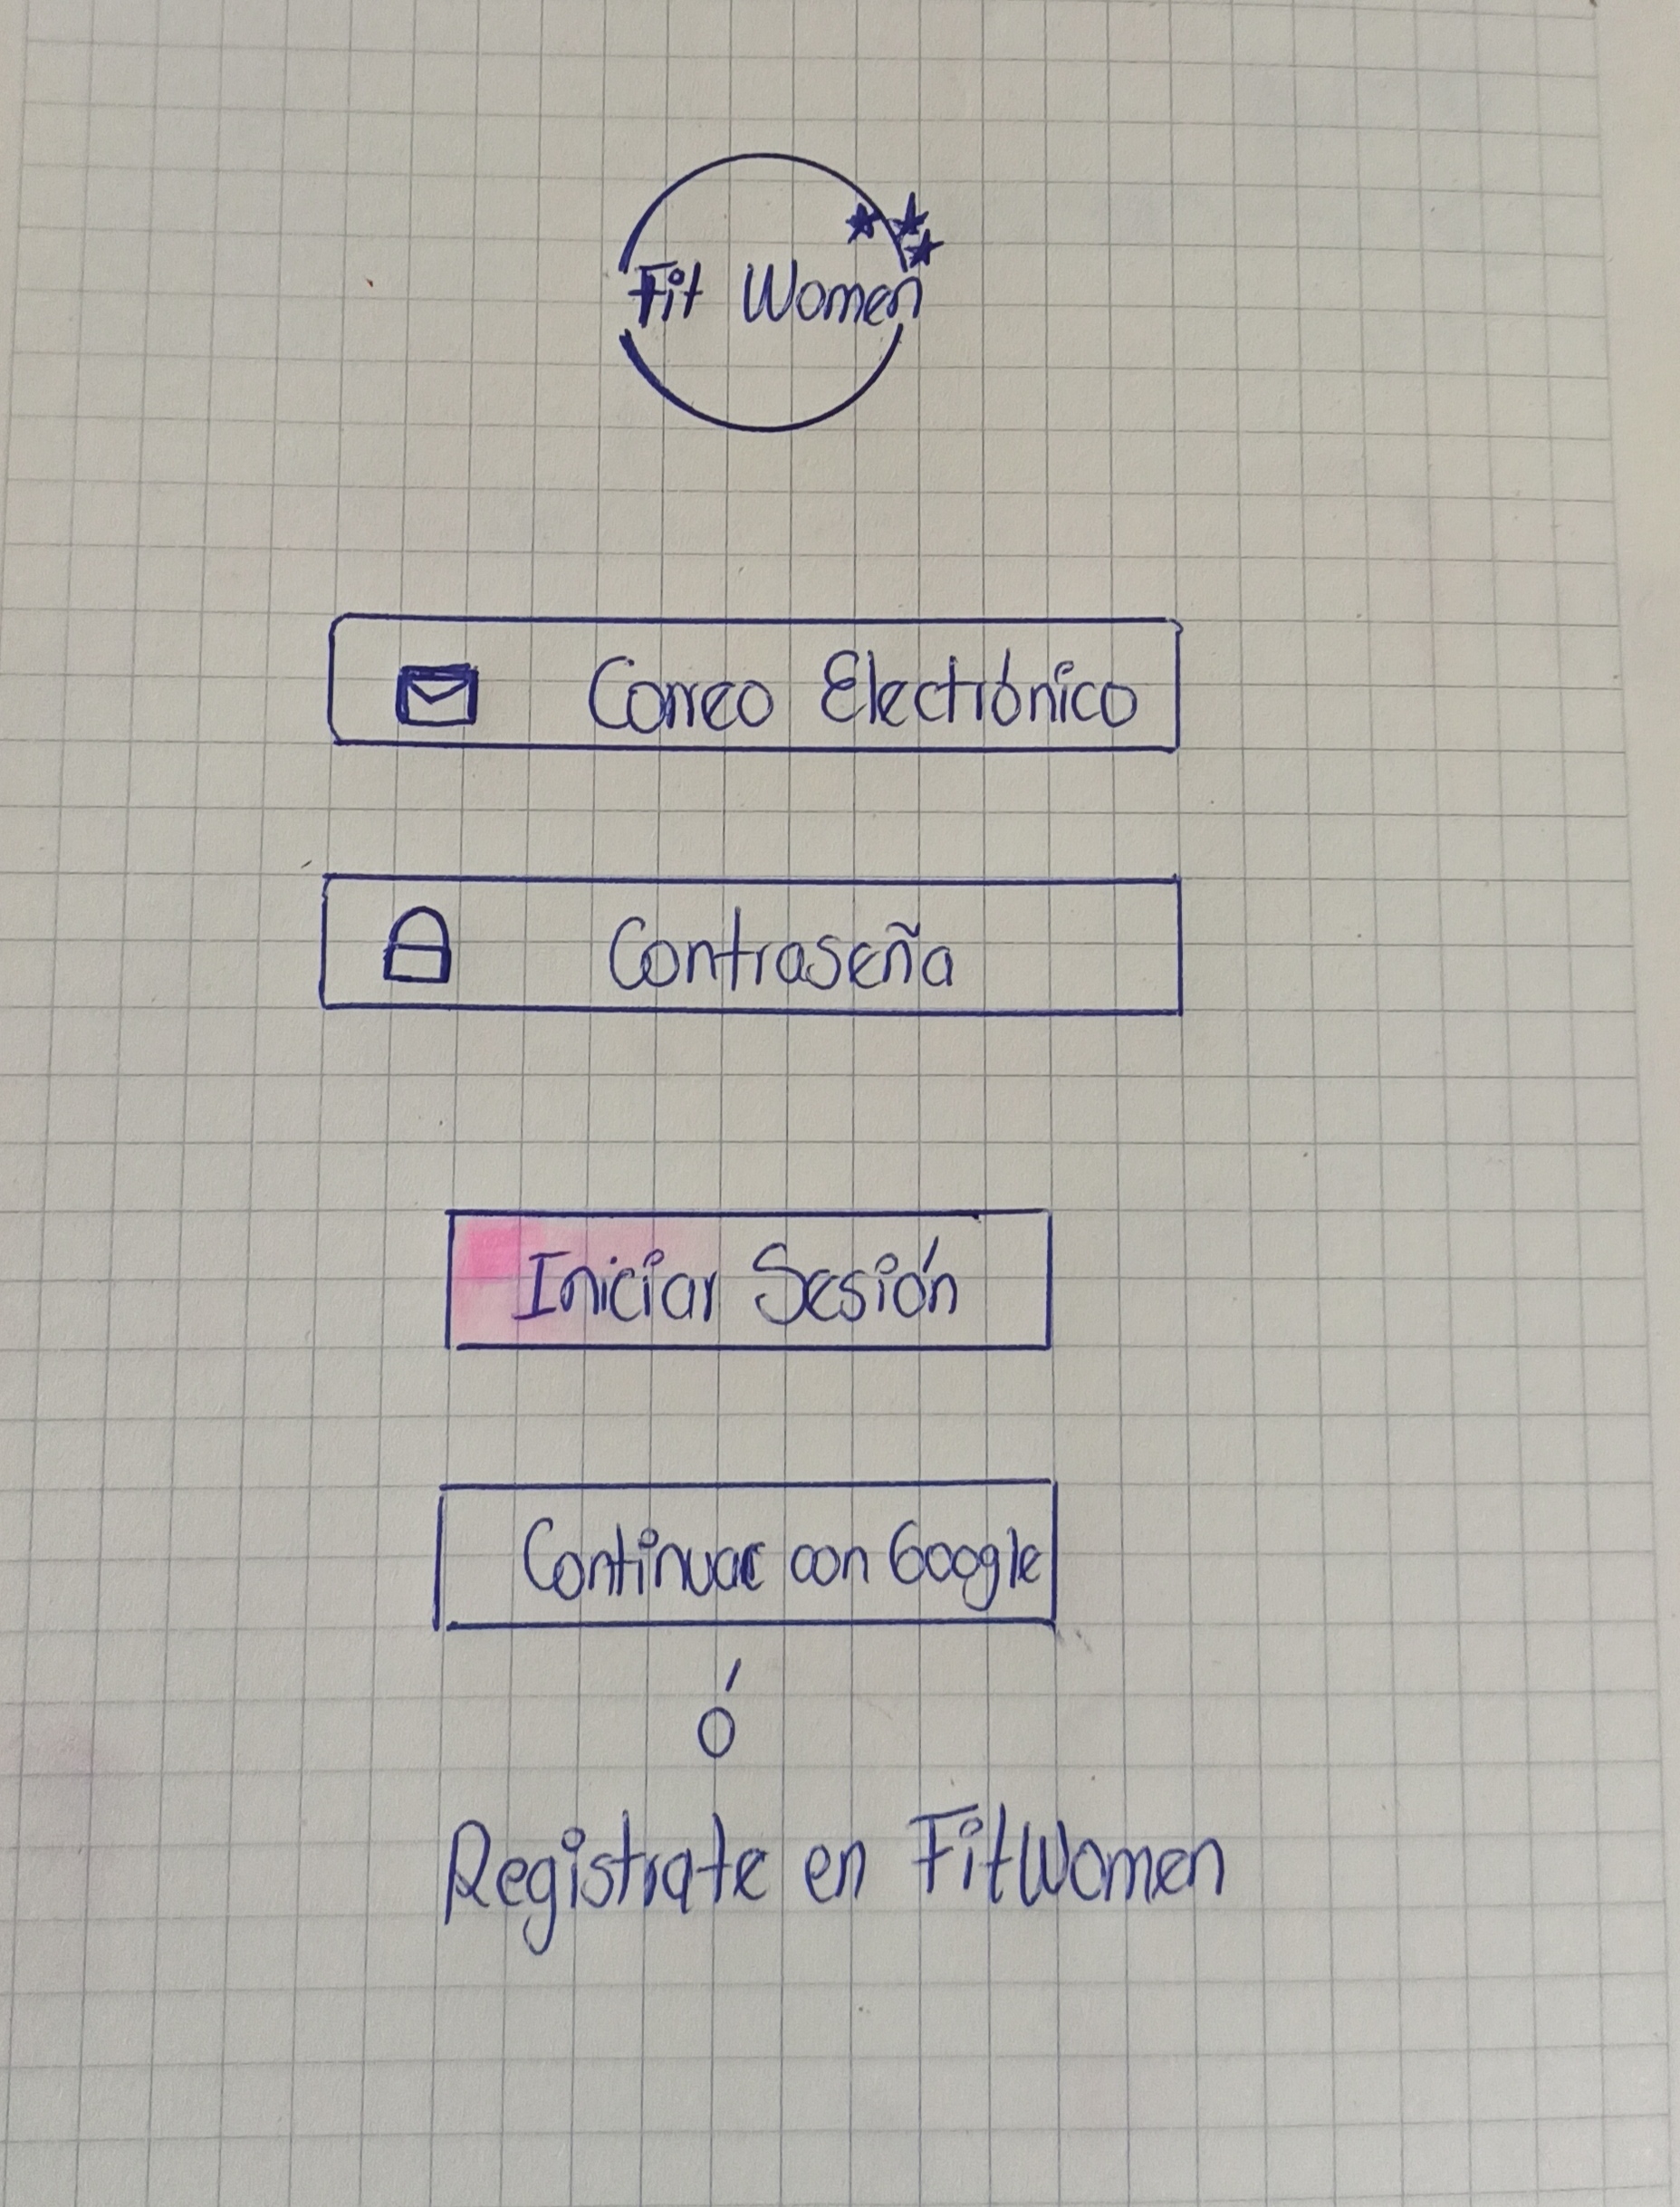 Fit Women
Correo Electrónico
Contraseña
Iniciar Sesión
Continuar con Google
ó
Registrate en FitWomen